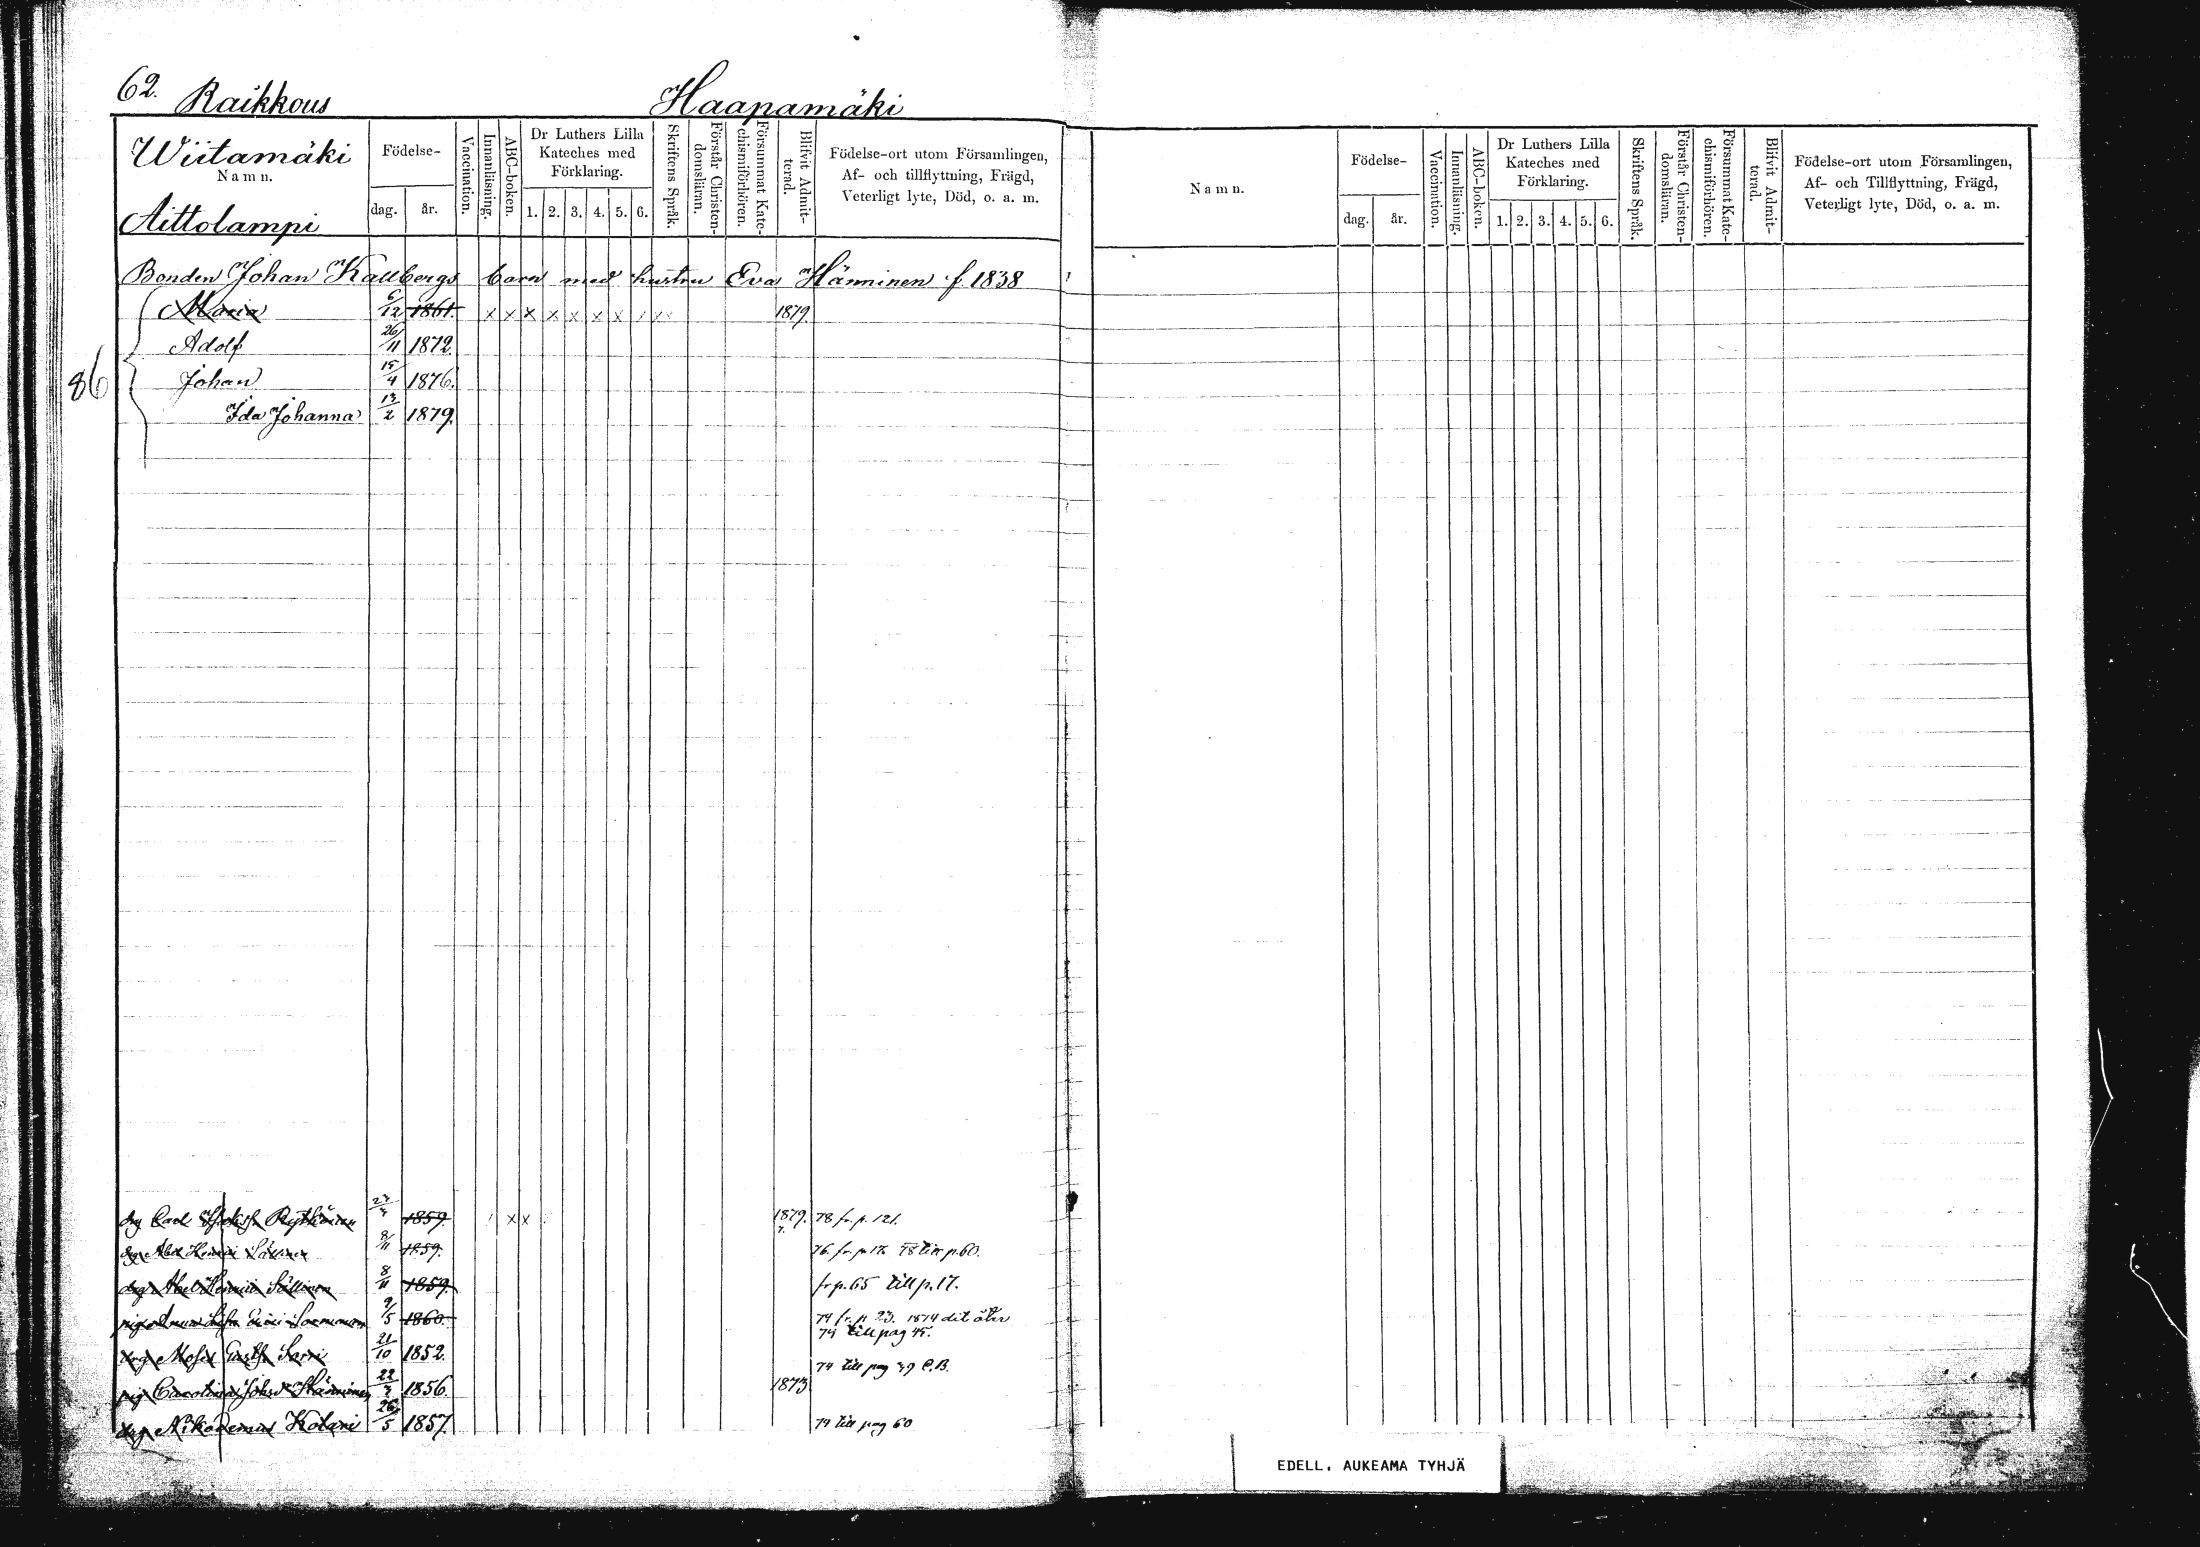 62. Raikkous Haapamäki
Wiitamäki
Namn.
Aittolampi
Födelse-
dag. år.
Vaccination.
Innanläsning.
ABC-boken.
Dr Luthers Lilla
Kateches med
Förklaring.
1. 2. 3. 4. 5. 6.
Skriftens Språk.
Förstår Christen-
domsläran.
Försummat Kate-
chismiförhören.
Blifvit Admit-
terad.
Födelse-ort utom Församlingen,
Af- och tillflyttning, Frägd,
Veterligt lyte, Död, o. a. m.
Namn.
Födelse-
dag. år.
Vaccination.
Innanläsning.
ABC-boken.
Dr Luthers Lilla
Kateches med
Förklaring.
1. 2. 3. 4. 5. 6.
Skriftens Språk.
Förstår Christen-
domsläran.
Försummat Kate-
chismiförhören.
Blifvit Admit-
terad.
Födelse-ort utom Församlingen,
Af- och Tillflyttning, Frägd,
Veterligt lyte, Död, o. a. m.
Bonden Johan Kallbergs barn med hustru Eva Hänninen f. 1838
Maria 6/12 1861. x x x x x x x 1879.
Adolf 26/11 1872.
86
Johan 15/4 1876.
Ida Johanna 13/2 1879.
drg Carl Rytkönen 1859. x x 1879. 78 fr. p. 121.
drg Abel 8/11 1859. 76. fr. p 17. 78 till p. 60.
drg Abel 8/11 1859. fr p. 65 till p. 17.
pig 9/5 1860. 74 fr. p. 23. 1874 dit åter
74 till pag 45.
drg Moses Gustf 21/10 1852.
74 till pag 39 C.B.
pig Carolina Hänninen 1856. 1873.
drg Nikodemus Kolari 26/5 1857. 74 till pag 60
EDELL. AUKEAMA TYHJÄ